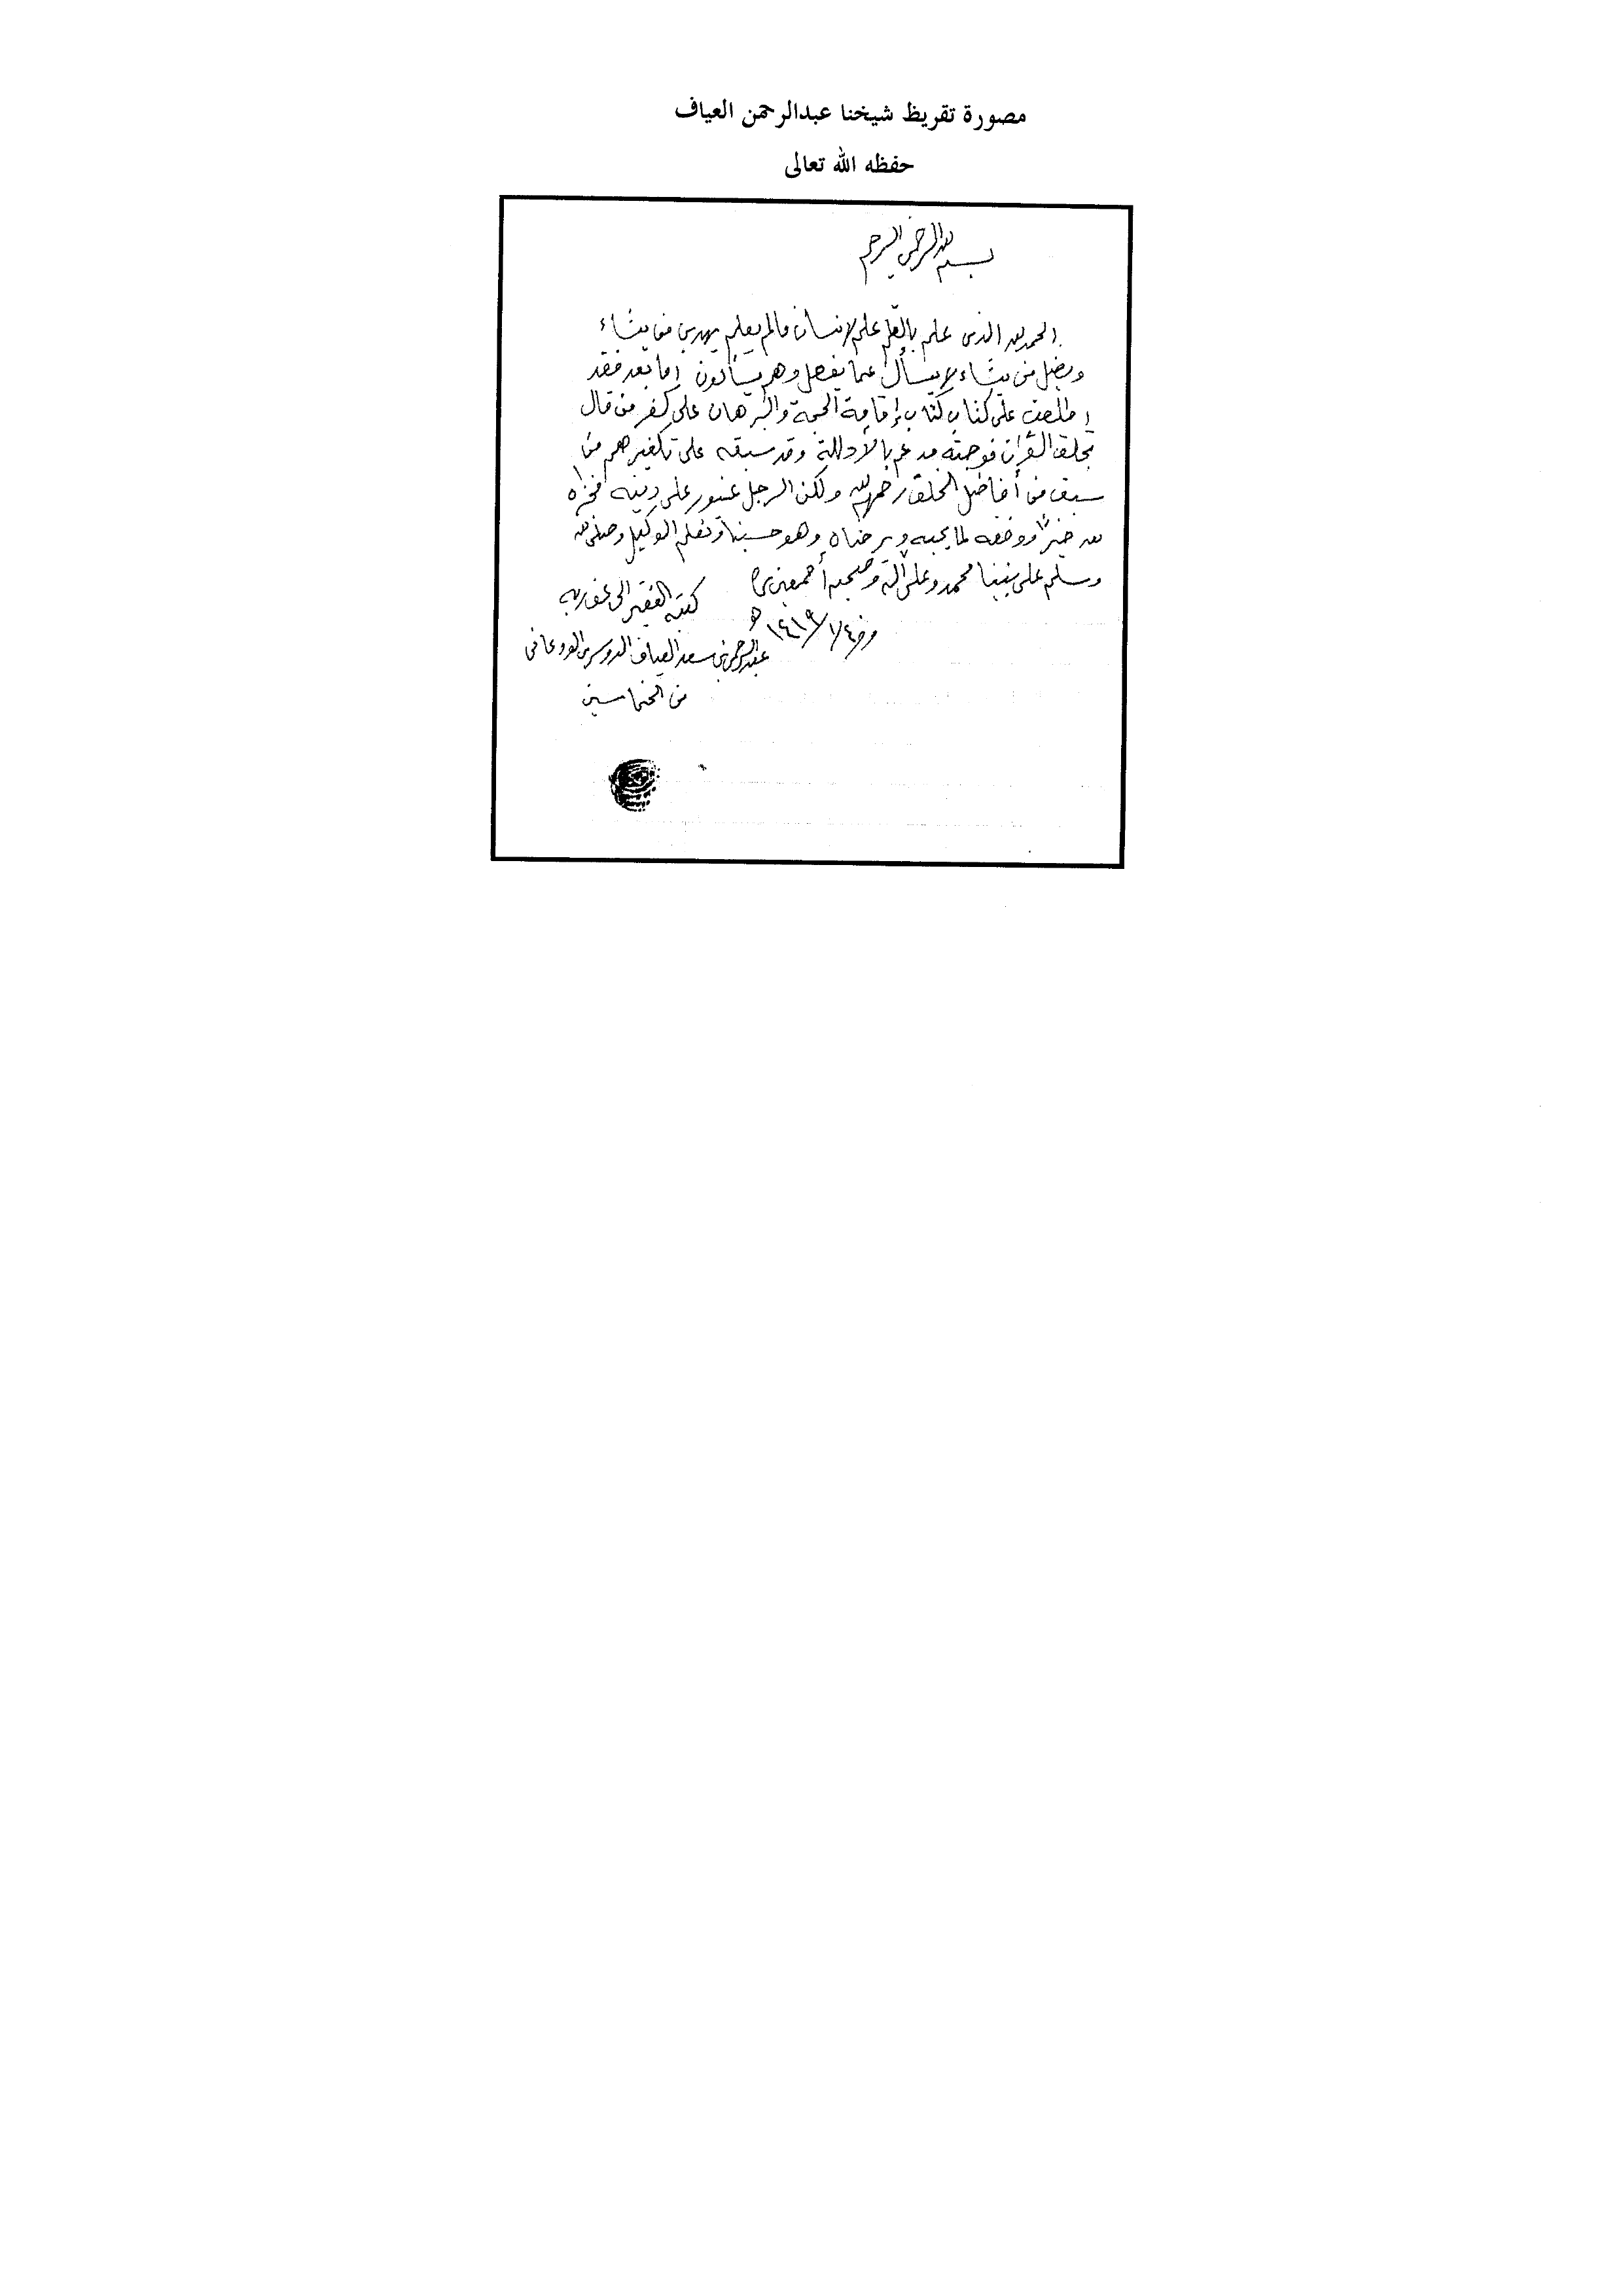 مصورة تقريظ شيخنا عبدالرحمن العياف
حفظه الله تعالى
بسم الله الرحمن الرحيم
الحمد لله الذي علم بالقلم علم الإنسان مالم يعلم يهدي من يشاء
ويضل من يشاء لا يسأل عما يفعل وهم يسألون إما بعد فقد
اطلعت على كتاب كتاب إقامة الحجة والبرهان على كفر من قال
بخلق القرآن فوجدته مدعم بالأدلة وقد سبقه على تكفيرهم من
سبق من أفاضل الخلق رحمهم الله ولكن الرجل غيور على دينه فجزاه
الله خيرًا ووفقه لما يحبه ويرضاه وهو حسبنا ونعم الوكيل وصلى الله
وسلم على نبينا محمد وعلى آله وصحبه أجمعين
كتبه الفقير إلى عفو ربه
١٤١٩/١/٤ هـ
عبدالرحمن بن سعد العياف الدوسري الودعاني
من الخماسين